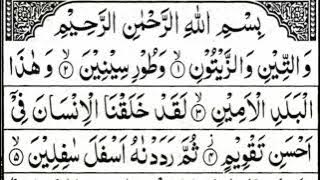 بِسْمِ اللّٰهِ الرَّحْمٰنِ الرَّحِیْمِ
وَالتِّیْنِ وَالزَّیْتُوْنِ ۙ﴿۱﴾ وَطُوْرِ سِیْنِیْنَ ۙ﴿۲﴾ وَهٰذَا
الْبَلَدِ الْاَمِیْنِ ۙ﴿۳﴾ لَقَدْ خَلَقْنَا الْاِنْسَانَ فِیْۤ
اَحْسَنِ تَقْوِیْمٍ ۫﴿۴﴾ ثُمَّ رَدَدْنٰهُ اَسْفَلَ سٰفِلِیْنَ ۙ﴿۵﴾